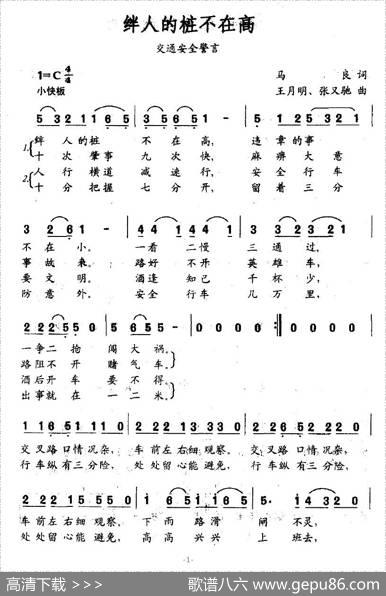 绊人的桩不在高
交通安全警言
1=C 4/4
小快板
马 良 词
王月明、张又驰 曲
5 3 2 1 1 6 5 5 1 6 5 - 5· 1 2 5 3 2 1
1.
绊 人 的 桩 不 在 高, 违 章 的 事
十 次 肇 事 九 次 快, 麻 痹 大 意
2.
人 行 横 道 减 速 行, 安 全 行 车
十 分 把 握 七 分 开, 留 着 三 分
3 2· 6 1 - 3 4 4 4 3 1 2 3 2 -
不 在 小。 一 看 二 慢 三 通 过,
事 故 来。 路 好 不 开 英 雄 车,
要 文 明。 酒 逢 知 己 千 杯 少,
防 意 外。 安 全 行 车 几 万 里,
2 2 2 5 5 0 5 5 6 2 1 - 0 0 0 0 :‖ 0 0 0 0
一 争 二 抢 闯 大 祸。
路 阻 不 开 赌 气 车。
酒 后 开 车 要 不 得。
出 事 就 在 一 二 米。
1 1 6 5 1 1 0 2 2 2 1 5 5 0 1 1 6 5 1 1 0
交 叉 路 口 情 况 杂, 车 前 左 右 细 观 察。 交 叉 路 口 情 况 杂,
行 车 纵 有 三 分 险, 处 处 留 心 能 避 免, 行 车 纵 有 三 分 险,
2 2 2 1 5 5 0 5 1 6 5 1 1 6 5 5· 1 4 3 2 0
车 前 左 右 细 观 察。 下 雨 路 滑 闸 不 灵,
处 处 留 心 能 避 免, 高 高 兴 兴 上 班 去,
-1-
高清下载 >>>
歌谱八六 www.gepu86.com